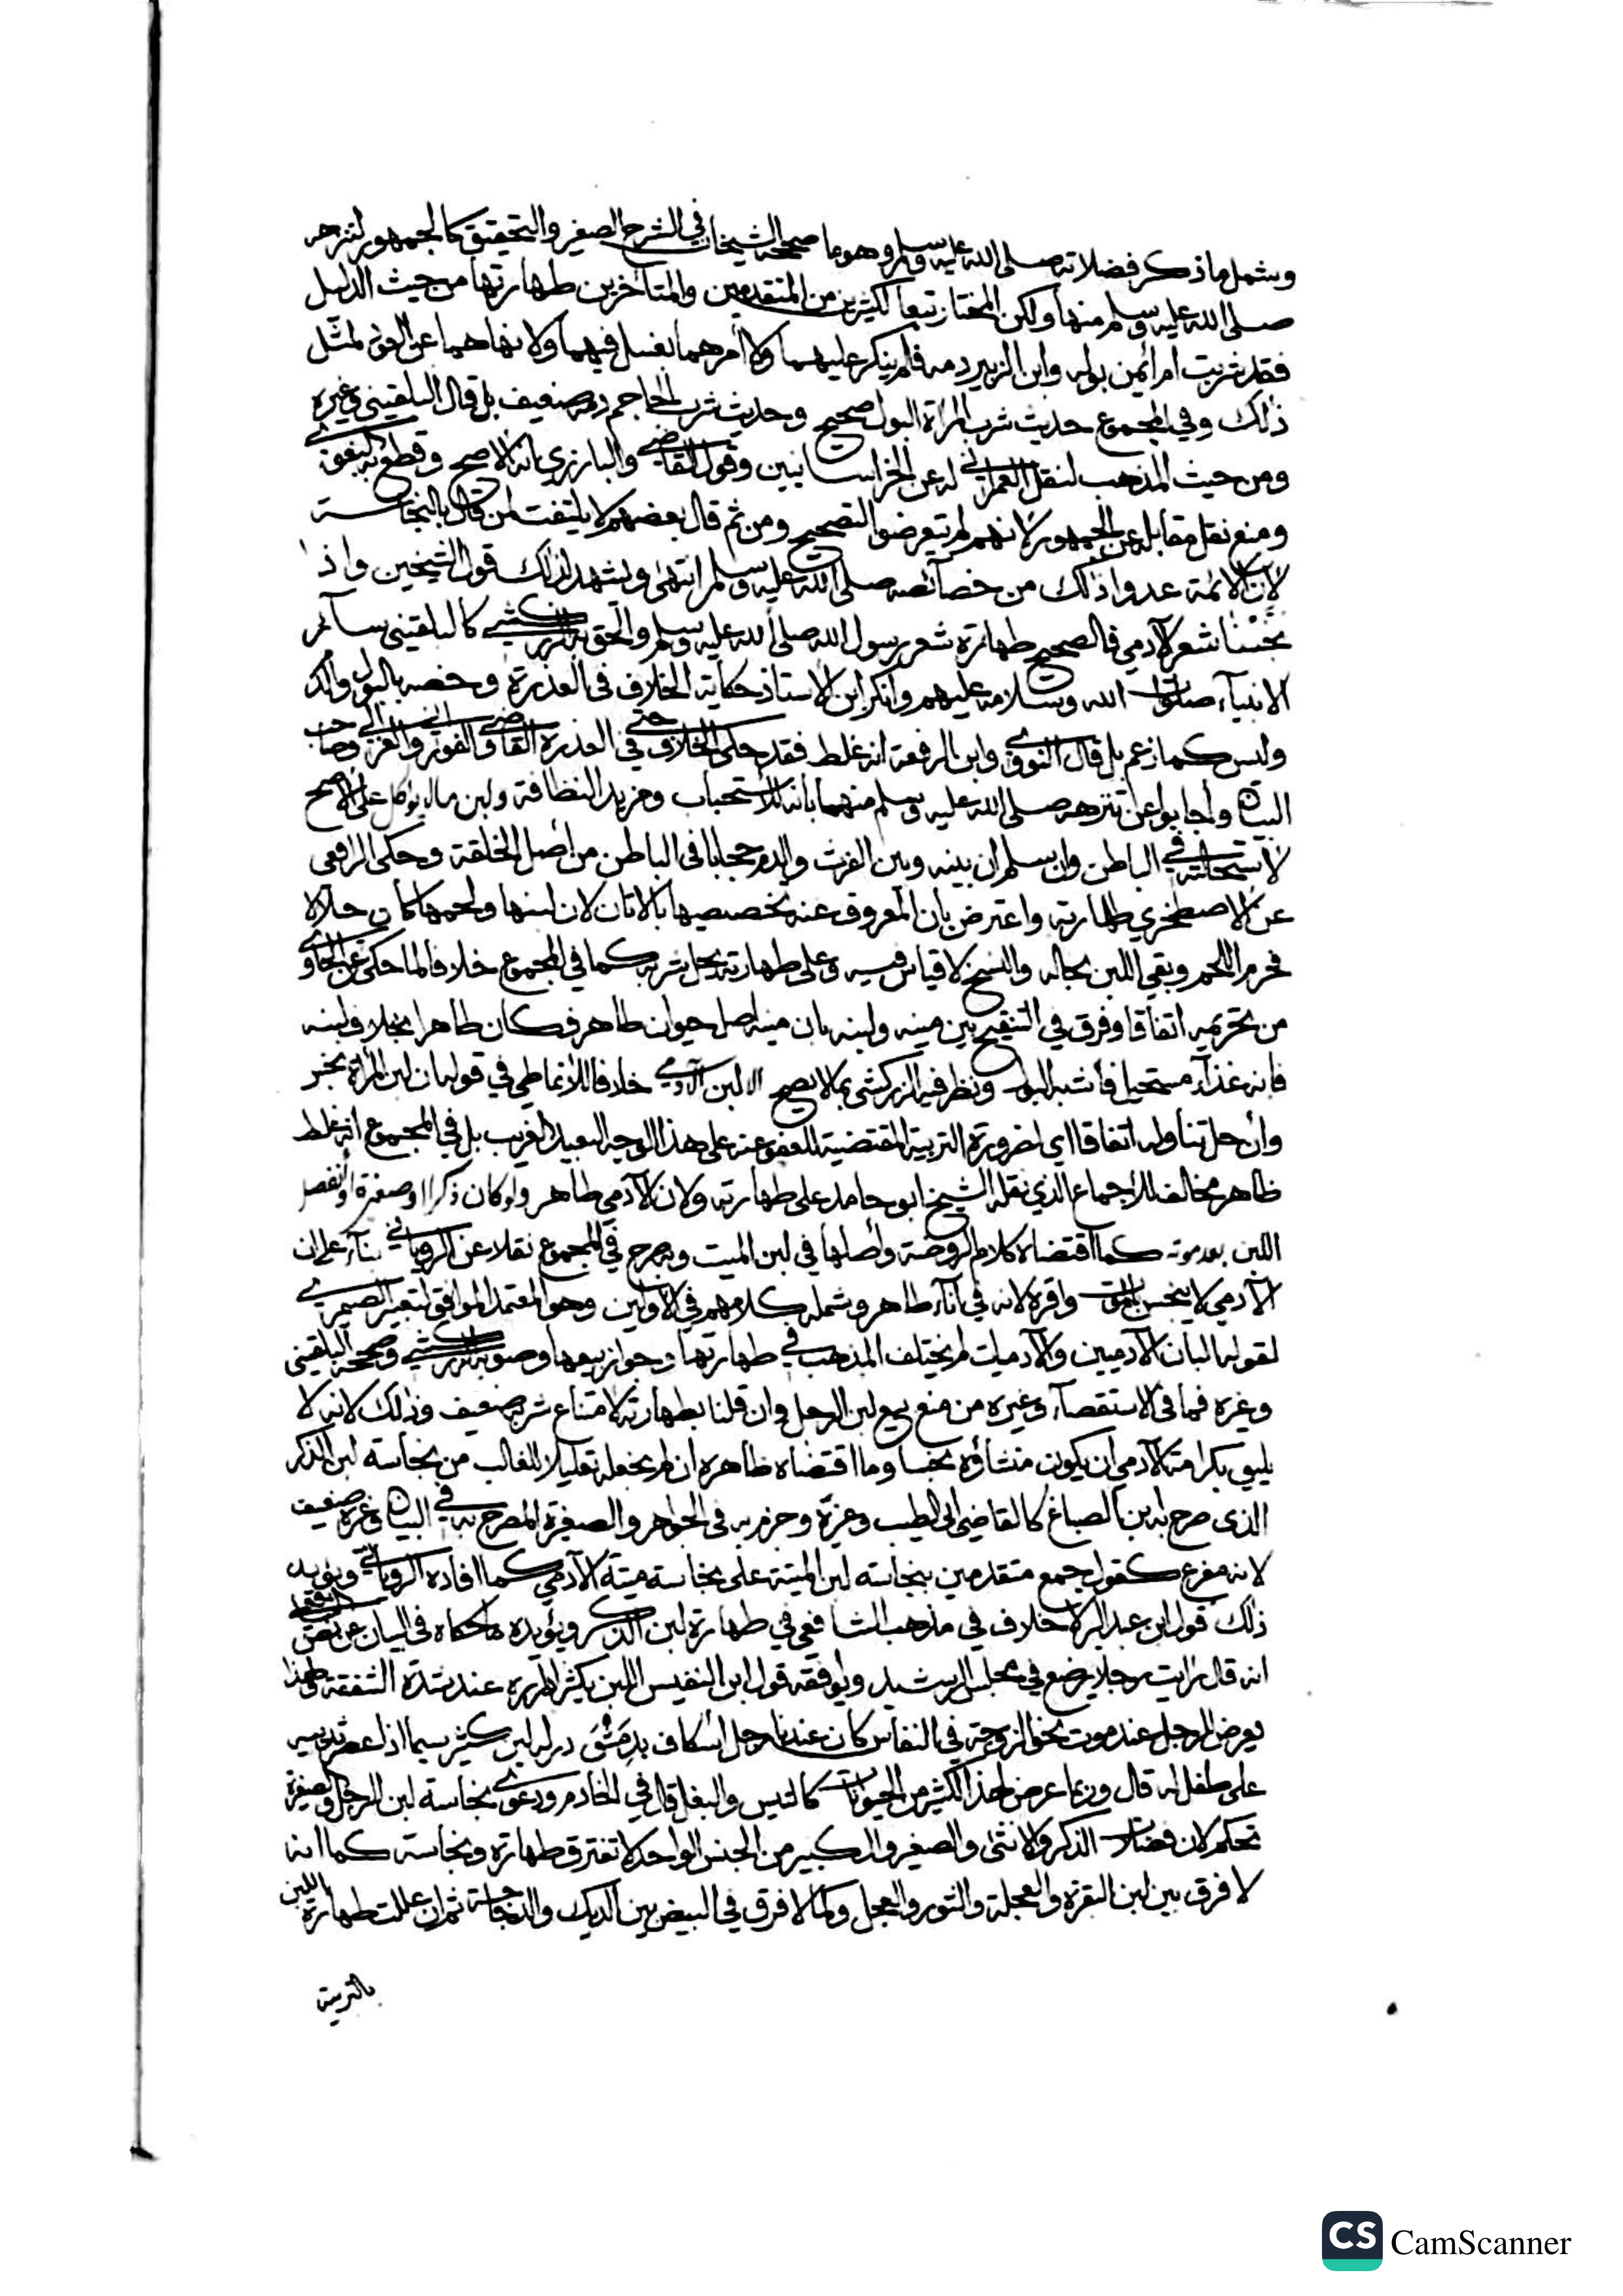 ويشمل ما ذكر فضلاته صلى الله عليه وسلم وهو ما صححه الشيخان في الشرح الصغير والتحقيق كالجمهور لتنزهه
صلى الله عليه وسلم منها ولكن المختار تبعا لكثيرين من المتقدمين والمتأخرين طهارتها من حيث الدليل
فقد شربت ام ايمن بوله وابن الزبير دمه فلم ينكر عليهما ولا امرهما بغسل فيهما ولا نهاهما عن العود لمثل
ذلك وفي المجموع حديث شرب المراة البول صحيح وحديث شرب الحاجم دمه ضعيف بل قال البلقيني وغيره
ومن حيث المذهب لنقل العمراني له عن الخراسانيين وقول القاضي والبارزي انه الاصح وقطع به البغوي
ومنع نقل مقابله عن الجمهور لانهم لم يتعرضوا لتصحيح ومن ثم قال بعضهم لا يلتفت لمن قال بالنجاسة
لأن الائمة عدوا ذلك من خصائصه صلى الله عليه وسلم انتهى ويشهد لذلك قول الشيخين واذا
نجسنا شعر الآدمي فالصحيح طهارة شعر رسول الله صلى الله عليه وسلم والحق به الزركشي كالبلقيني سائر
الانبياء صلوات الله وسلامه عليهم وانكر ابن الاستاذ حكاية الخلاف في العذرة وخصه بالبول والدم
وليس كما زعم بل قال النووي وابن الرفعة انه غلط فقد حكى الخلاف حتى في العذرة القاضي والفوراني والغزالي وصاحب
البيان وأجابوا عن تنزهه صلى الله عليه وسلم منهما بانه للاستحباب ومزيد النظافة ولبن مالا يوكل على الاصح
لاستحالته في الباطن وان سلم ان بينه وبين الفرث والدم حجابا في الباطن من أصل الخلقة وحكى الرافعي
عن الاصطخري طهارته واعترض بأن المعروف عنه تخصيصها بالاتان لان لبنها ولحمها كان حلالا
فحرم اللحم وبقي اللبن بحاله والنسخ لا قياس فيه وعلى طهارته يحل شربه كما في المجموع خلافا لما حكى عن الحاوي
من تحريمه اتفاقا وفرق في التنقيح بين منيه ولبنه بان منيه اصل حيوان طاهر فكان طاهرا بخلاف لبنه
فانه غذاء مستحيل فأشبه البول ونظر فيه الزركشي بما لا يصح الا لبن الآدمي خلافا للأنماطي في قوله ان لبن المرأة نجس
وان حل تناوله اتفاقا اي لضرورة التربية المقتضية للعفو عنه على هذا الوجه البعيد الغريب بل في المجموع انه غلط
ظاهر مخالف للاجماع الذي نقله الشيخ ابو حامد على طهارته ولان الآدمي طاهر ولو كان ذكرا او صغيرة او انفصل
اللبن بعد موته كما اقتضاه كلام الروضة وأصلها في لبن الميت وبه صرح في المجموع نقلا عن الروياني بناء على ان
الآدمي لا ينجس بالموت واقره لانه في اناء طاهر وشمله كلامهم في الأولين وهو المعتمد الموافق لتعبير الصيمري
لقوله البان الآدميين والآدميات لم يختلف المذهب في طهارتها وجواز بيعها وصوبه الزركشي وصححه البلقيني
وغيره فما في الاستقصاء وغيره من منع بيع لبن الرجل وان قلنا بطهارته لامتناع شربه ضعيف وذلك لانه لا
يليق بكرامة الآدمي ان يكون منشاؤه نجسا وما اقتضاه ظاهره ان لم نجعله تعليلا للغالب من نجاسة لبن الذكر
الذي صرح به ابن الصباغ كالقاضي ابي الطيب وغيره وجزم به في الجواهر والصغيرة المصرح به في البيان وغيره ضعيف
لانه مفرع كقول جمع متقدمين بنجاسة لبن الميتة على نجاسة ميتة الآدمي كما افاده الروياني ويؤيد
ذلك قول ابن عبد البر لا خلاف في مذهب الشافعي في طهارة لبن الذكر ويؤيده ما حكاه في البيان عن نص
انه قال رايت رجلا يرضع في مجلس الرشيد ويوافقه قول ابن النفيس اللبن يكثر لمن عند شدة الشفقة ولهذا
يعرض للرجل عند موت نحو الزوجة في النفاس كان عندنا رجل اسكاف بدمشق در له لبن كثير سيما اذا عصر ثدييه
على طفل له قال وربما عرض هذا لكثير من الحيوانات كالتيس والبغل قال في الخادم ودعوى نجاسة لبن الرجل والصغيرة
تحكم لان فضلات الذكر والانثى والصغير والكبير من الجنس الواحد لا تفترق طهارة ونجاسة كما انه
لا فرق بين لبن البقرة والعجلة والثور والعجل وكما لا فرق في البيض بين الديك والدجاجة ثم ان عللت طهارة اللبن
بالتربية
CS CamScanner